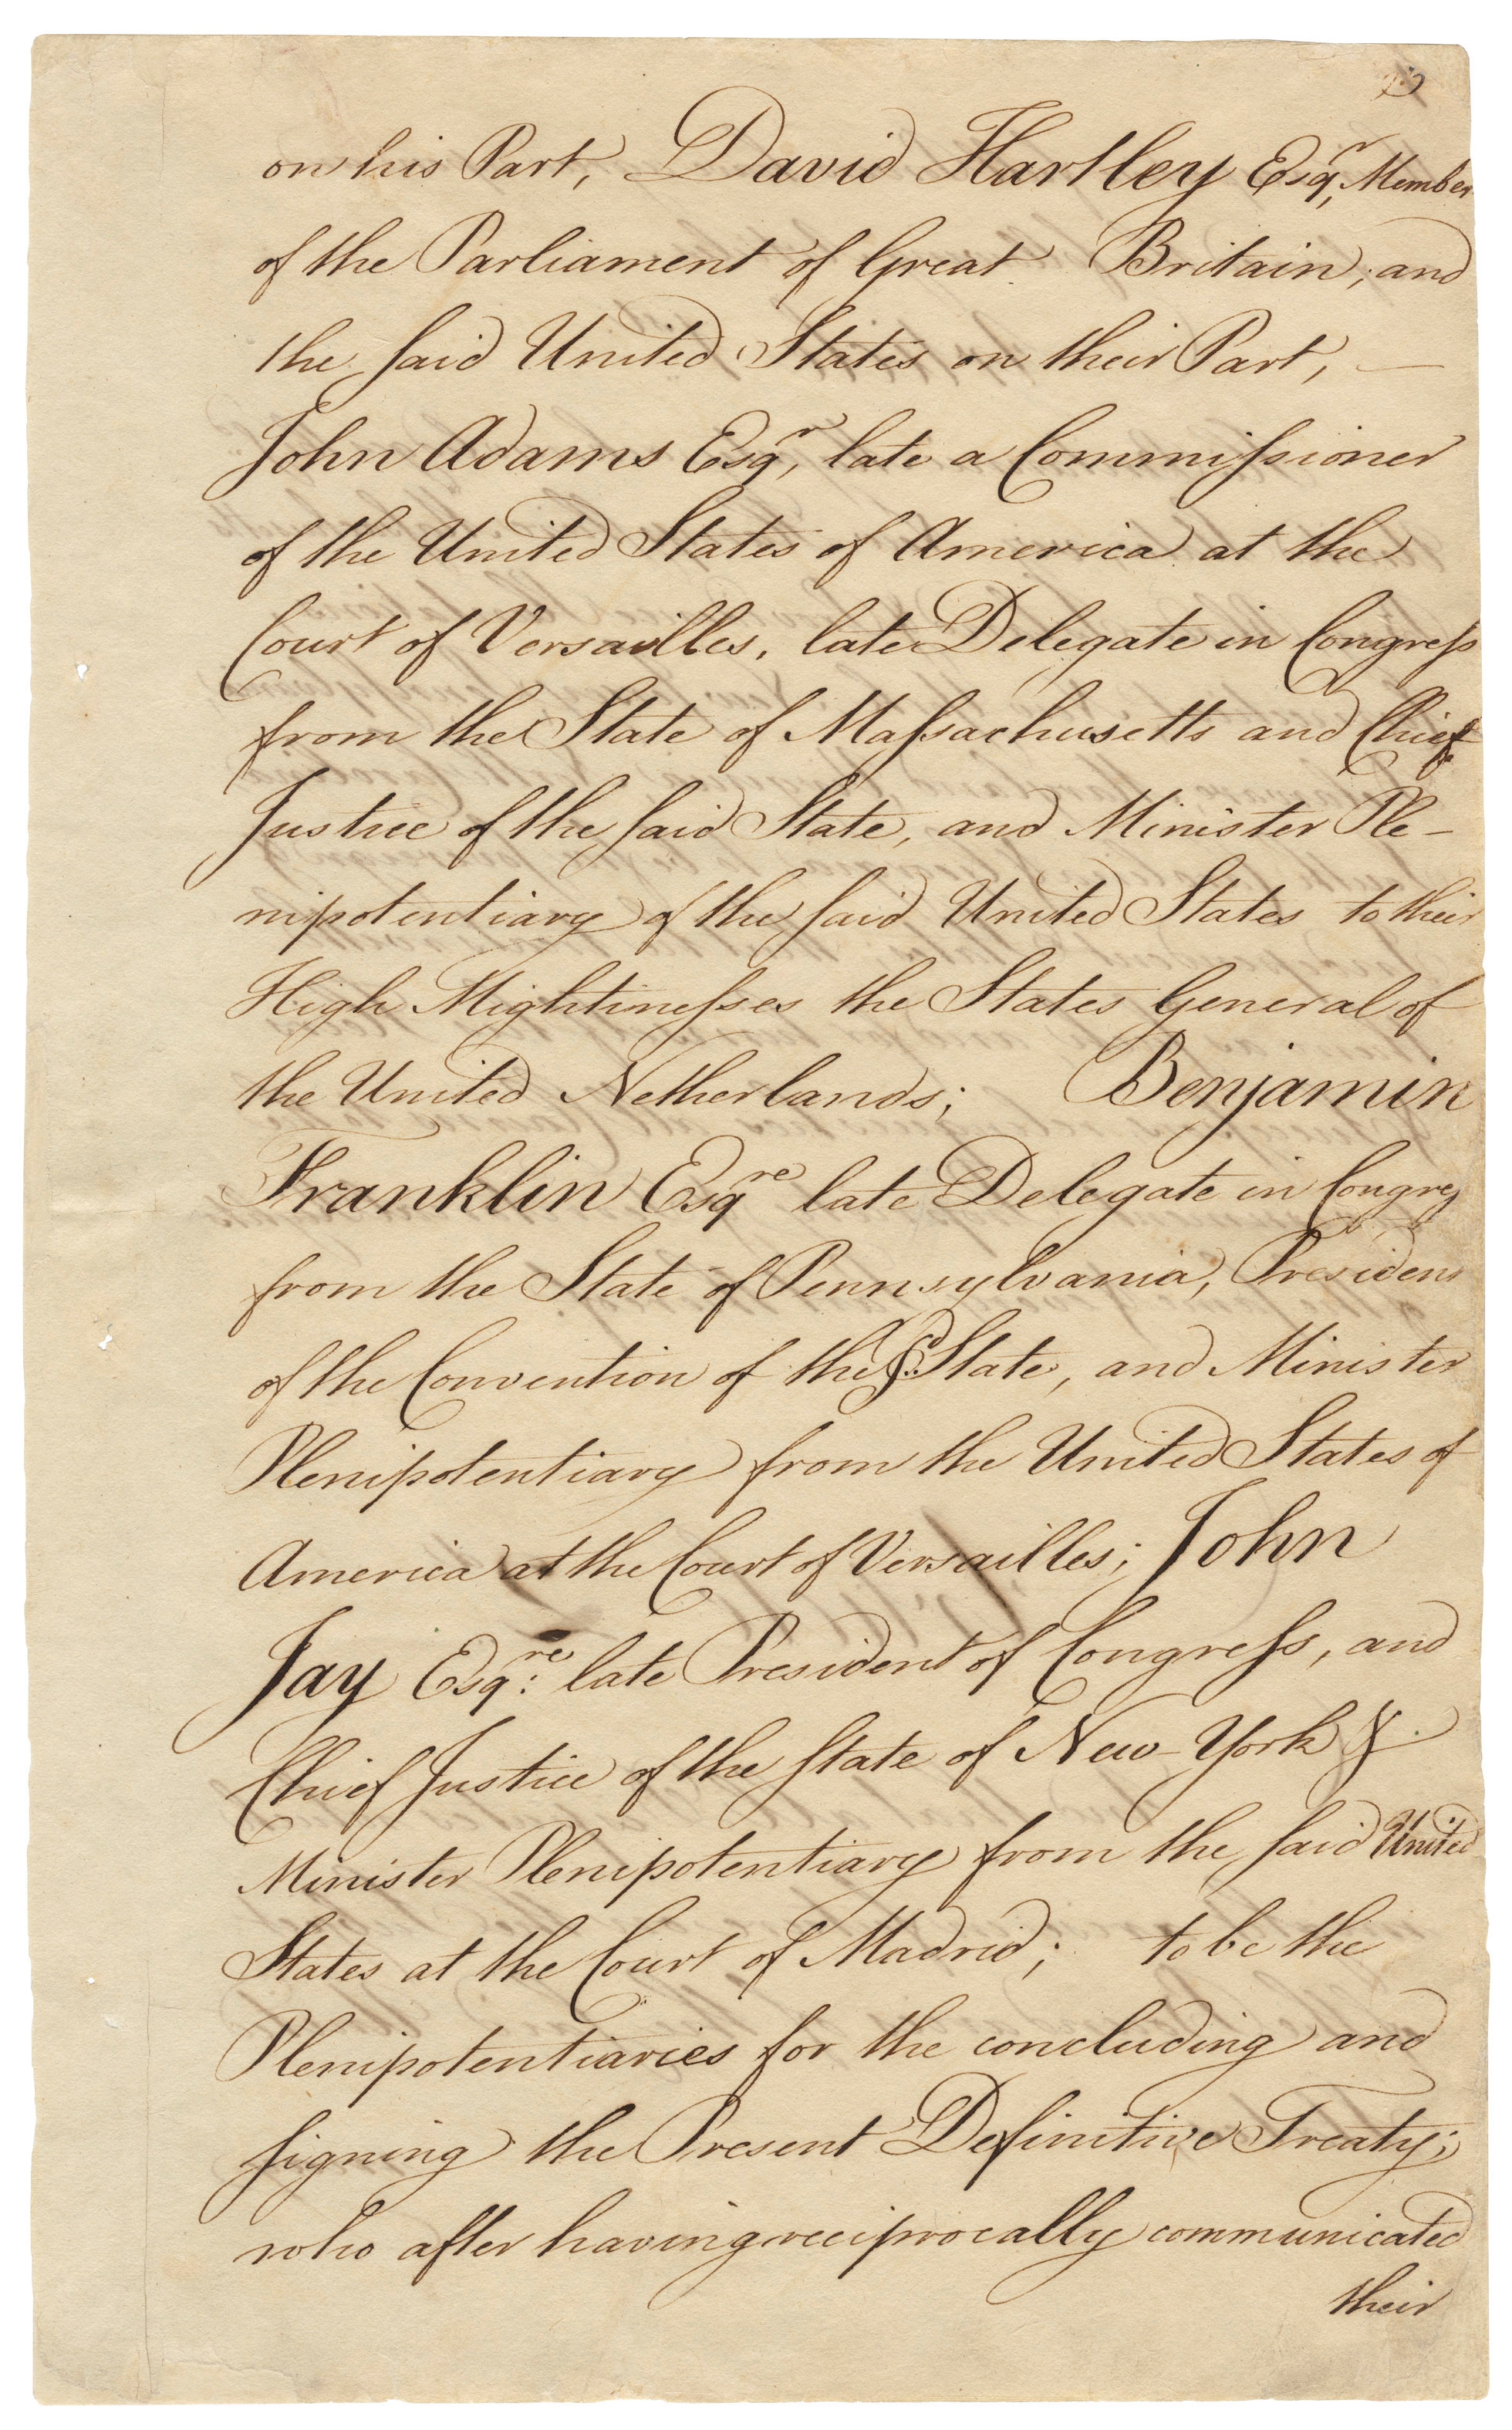 on his Part, David Hartley Esqr, Member
of the Parliament of Great Britain; and
the said United States on their Part, —
John Adams Esqr, late a Commissioner
of the United States of America at the
Court of Versailles, late Delegate in Congress
from the State of Massachusetts and Chief
Justice of the said State, and Minister Ple-
nipotentiary of the said United States to their
High Mightinesses the States General of
the United Netherlands; Benjamin
Franklin Esqre late Delegate in Congres
from the State of Pennsylvania, President
of the Convention of the sd. State, and Minister
Plenipotentiary from the United States of
America at the Court of Versailles; John
Jay Esqre: late President of Congress, and
Chief Justice of the State of New-York &
Minister Plenipotentiary from the said United
States at the Court of Madrid; to be the
Plenipotentiaries for the concluding and
signing the Present Definitive Treaty;
who after having reciprocally communicated
their